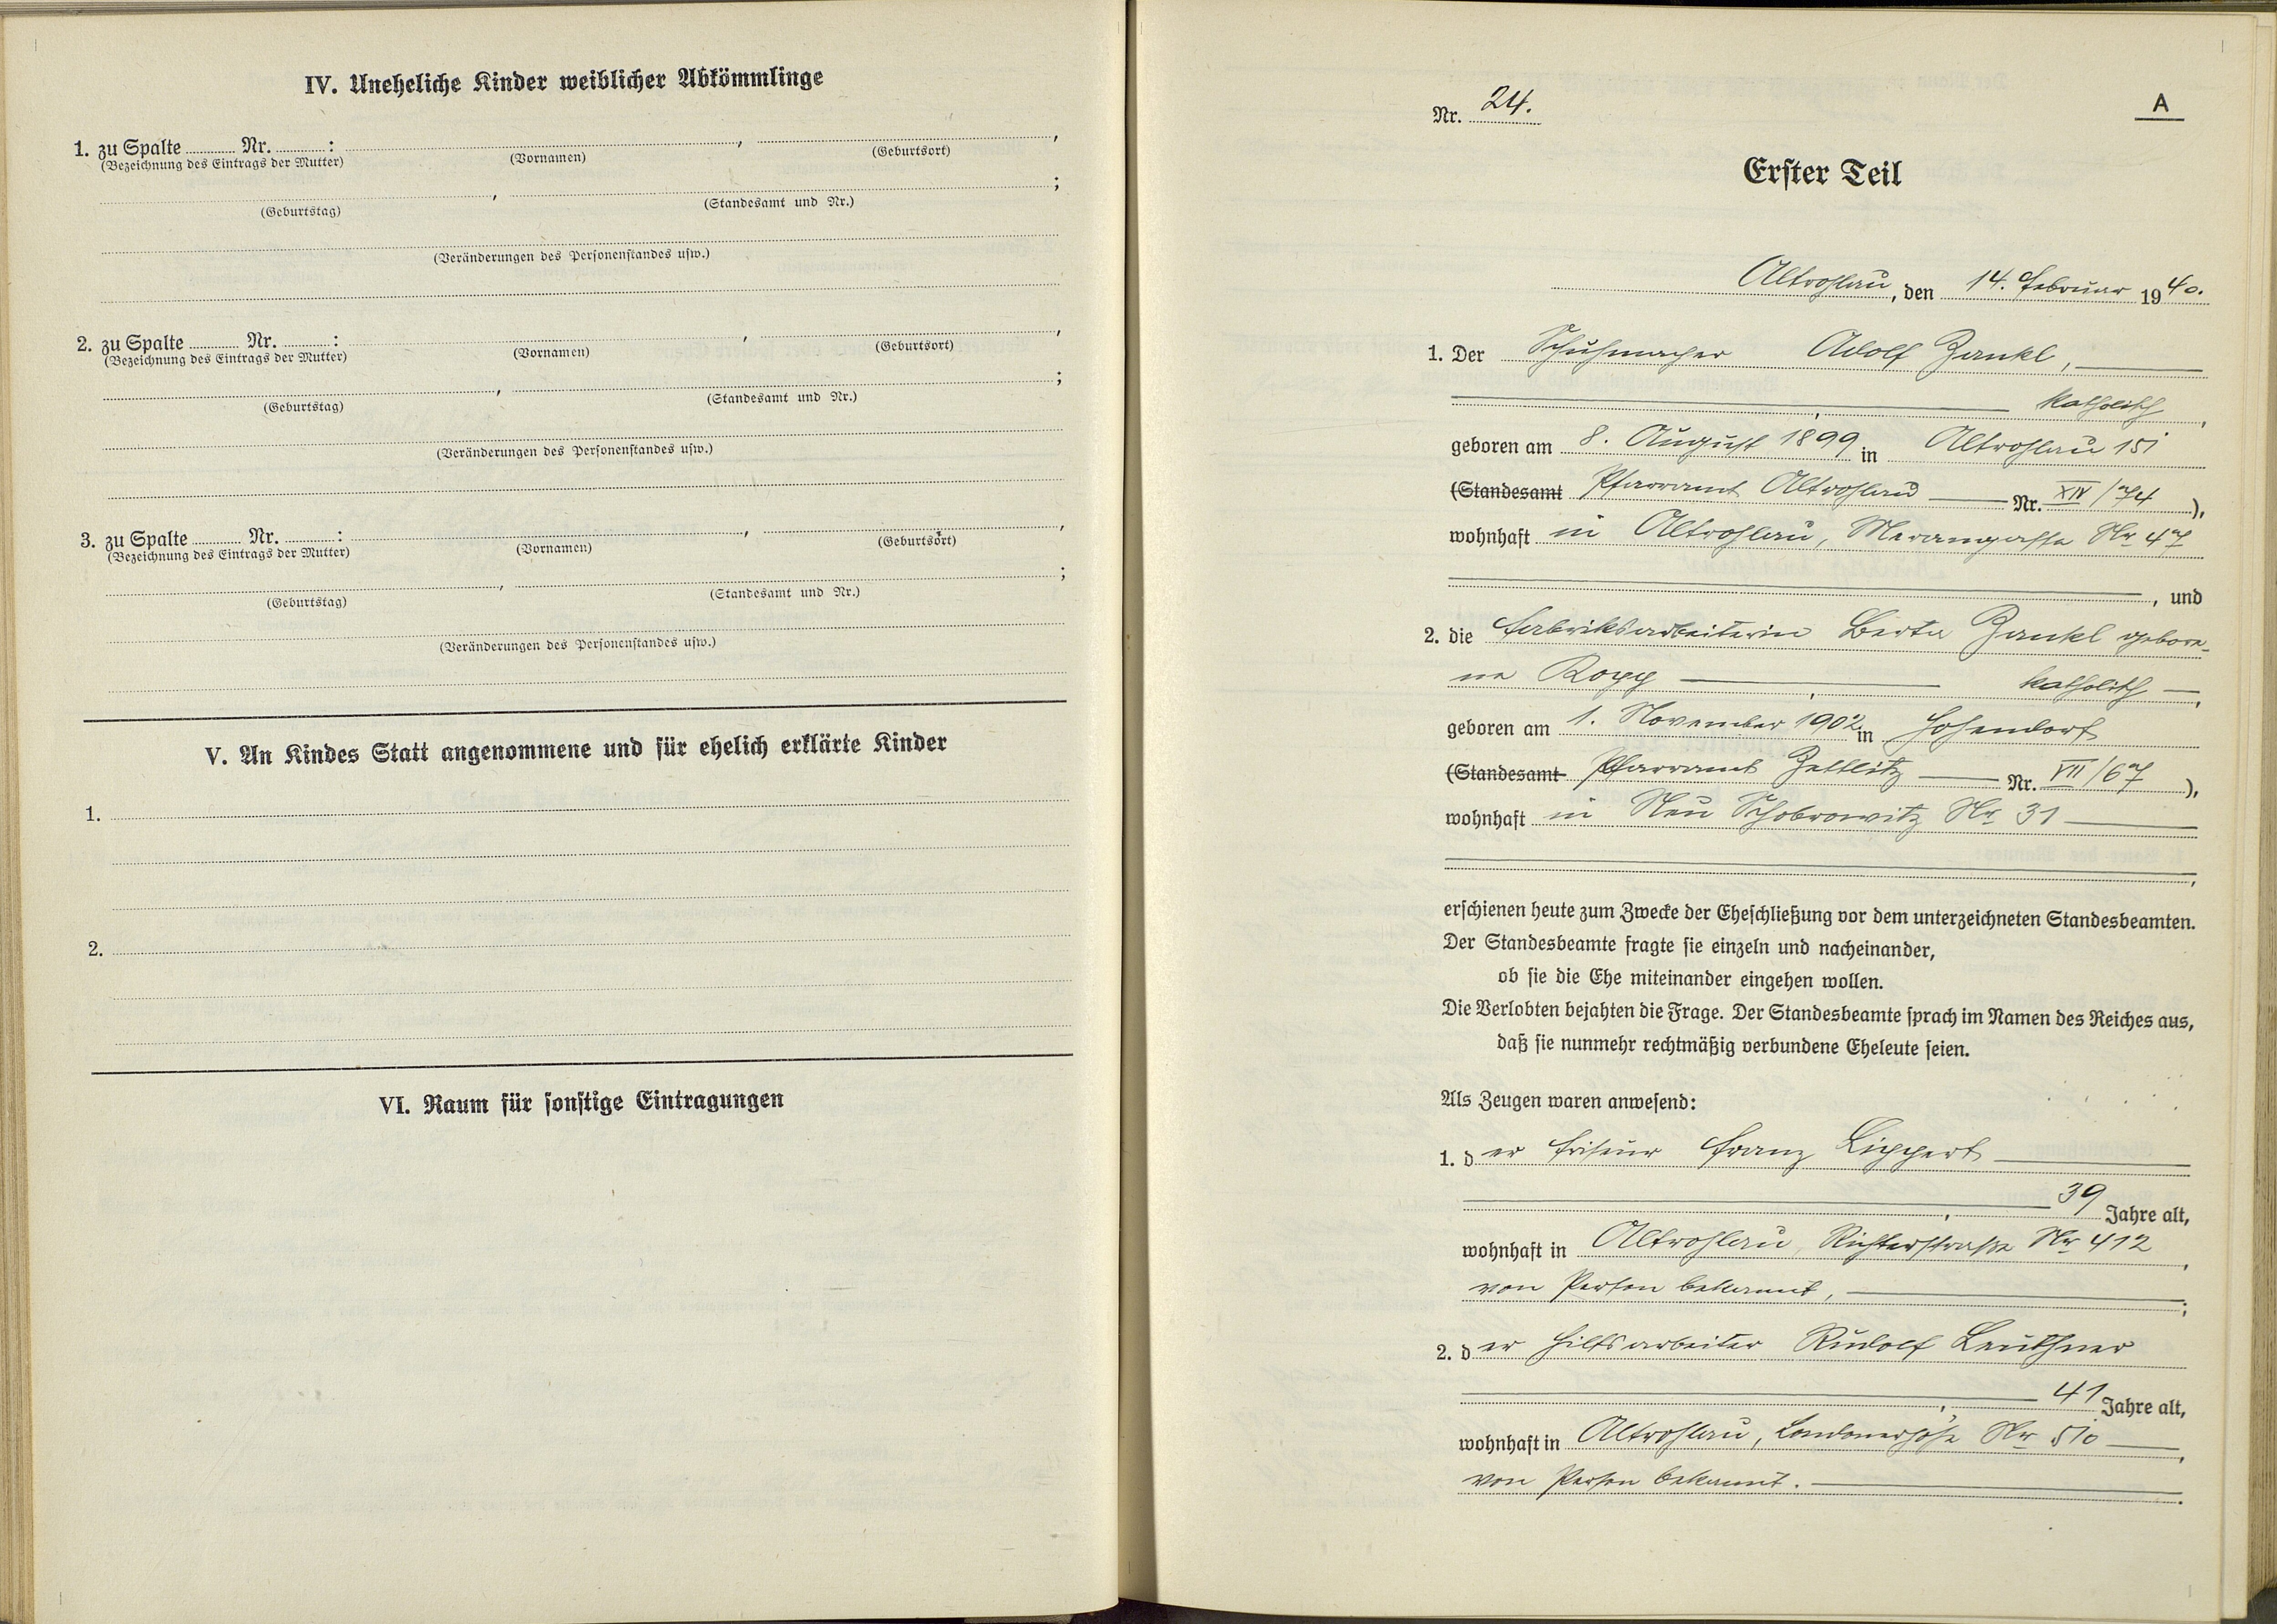 IV. Uneheliche Kinder weiblicher Abkömmlinge
1. zu Spalte ........ Nr. ........ : ........, ........,
(Bezeichnung des Eintrags der Mutter) (Vornamen) (Geburtsort)
........, ........;
(Geburtstag) (Standesamt und Nr.)
(Veränderungen des Personenstandes usw.)
2. zu Spalte ........ Nr. ........ : ........, ........,
(Bezeichnung des Eintrags der Mutter) (Vornamen) (Geburtsort)
........, ........;
(Geburtstag) (Standesamt und Nr.)
(Veränderungen des Personenstandes usw.)
3. zu Spalte ........ Nr. ........ : ........, ........,
(Bezeichnung des Eintrags der Mutter) (Vornamen) (Geburtsort)
........, ........;
(Geburtstag) (Standesamt und Nr.)
(Veränderungen des Personenstandes usw.)
V. An Kindes Statt angenommene und für ehelich erklärte Kinder
1.
2.
VI. Raum für sonstige Eintragungen
Nr. 24.
A
Erster Teil
Altrohlau, den 14. Februar 1940.
1. Der Schuhmacher Adolf Zankl,
katholisch,
geboren am 8. August 1899 in Altrohlau 151
(Standesamt Pfarramt Altrohlau Nr. XIV/74),
wohnhaft in Altrohlau, Merangasse Nr 47
, und
2. die Fabriksarbeiterin Berta Zankl gebore-
ne Kopp, katholisch,
geboren am 1. November 1902 in Hohendorf
(Standesamt Pfarramt Zettlitz Nr. VII/67),
wohnhaft in Neu Schobrowitz Nr 31
,
erschienen heute zum Zwecke der Eheschließung vor dem unterzeichneten Standesbeamten.
Der Standesbeamte fragte sie einzeln und nacheinander,
ob sie die Ehe miteinander eingehen wollen.
Die Verlobten bejahten die Frage. Der Standesbeamte sprach im Namen des Reiches aus,
daß sie nunmehr rechtmäßig verbundene Eheleute seien.
Als Zeugen waren anwesend:
1. der Friseur Franz Lippert
, 39 Jahre alt,
wohnhaft in Altrohlau, Richterstraße Nr 412,
von Person bekannt, ;
2. der Hilfsarbeiter Rudolf Leuthner
, 41 Jahre alt,
wohnhaft in Altrohlau, Nr 510,
von Person bekannt.